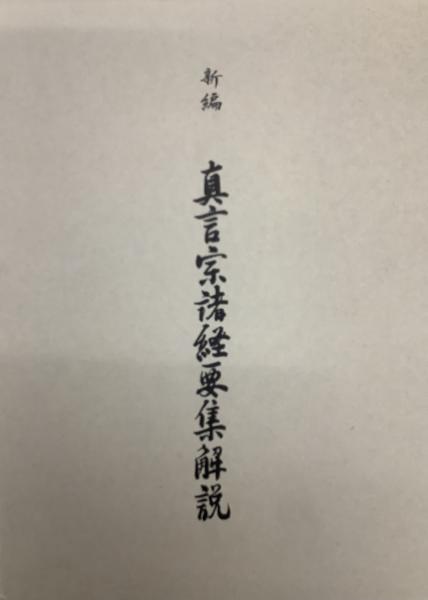 新編
真言宗諸経要集解説